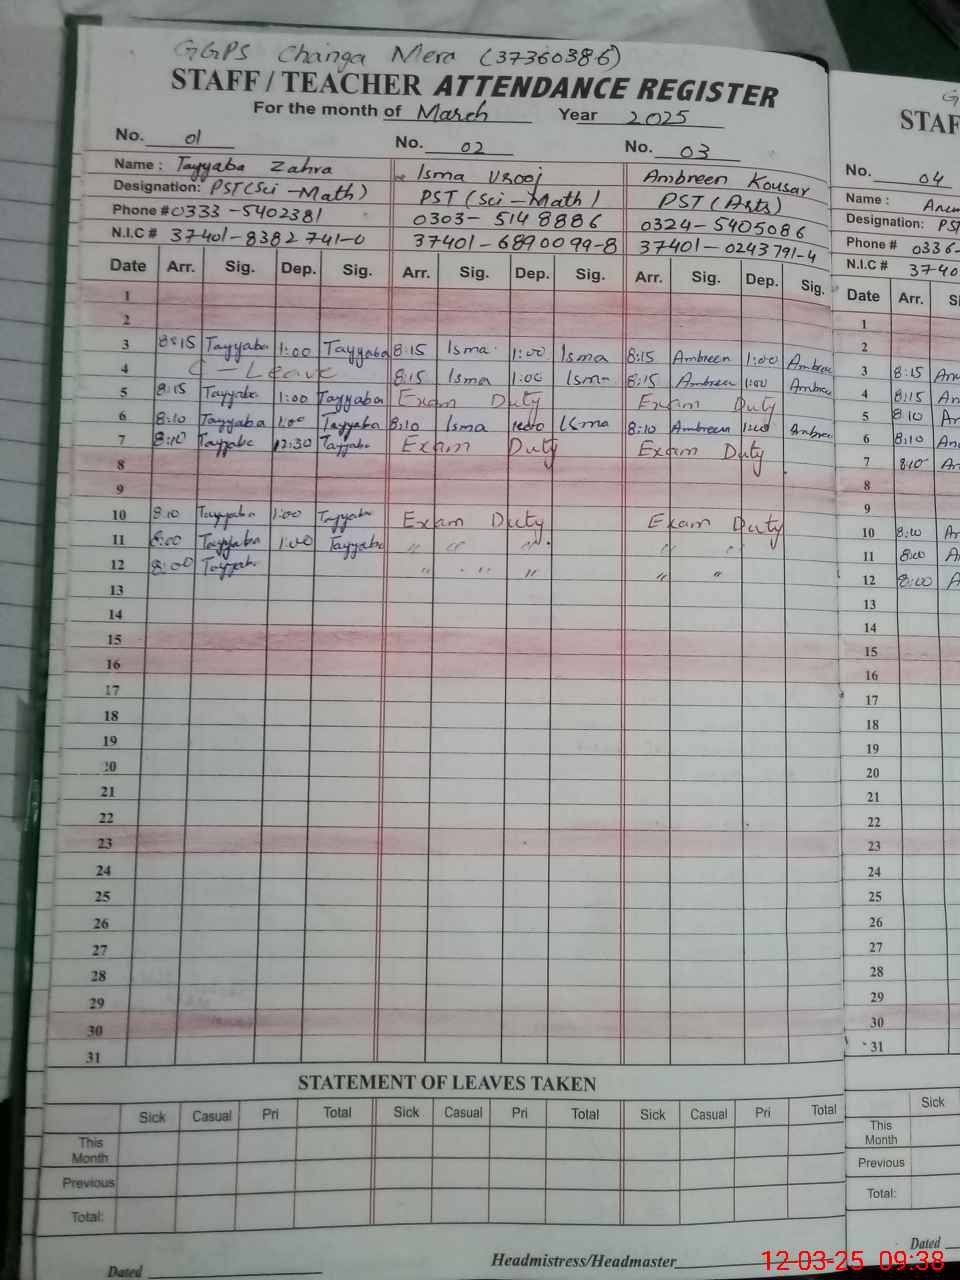 GGPS Changa Mera (37360386)
STAFF / TEACHER ATTENDANCE REGISTER
For the month of March Year 2025
No. 01 No. 02 No. 03
Name : Tayyaba Zahra Isma Urooj Ambreen Kousar
Designation: PST (Sci - Math) PST (Sci - Math) PST (Arts)
Phone # 0333 - 5402381 0303 - 5148886 0324 - 5405086
N.I.C # 37401 - 8382741-0 37401 - 6890099-8 37401 - 0243791-4
Date Arr. Sig. Dep. Sig. Arr. Sig. Dep. Sig. Arr. Sig. Dep. Sig.
1
2
3 8:15 Tayyaba 1:00 Tayyaba 8:15 Isma 1:00 Isma 8:15 Ambreen 1:00 Ambree
4 C - Leave 8:15 Isma 1:00 Isma 8:15 Ambreen 1:00 Ambree
5 8:15 Tayyaba 1:00 Tayyaba Exam Duty Exam Duty
6 8:10 Tayyaba 1:00 Tayyaba 8:10 Isma Isma 8:10 Ambreen Ambree
7 8:10 Tayyaba 12:30 Tayyaba Exam Duty Exam Duty
8
9
10 8:10 Tayyaba 1:00 Tayyaba Exam Duty Exam Duty
11 8:00 Tayyaba 1:00 Tayyaba " " " " "
12 8:00 Tayyaba " " " " "
13
14
15
16
17
18
19
20
21
22
23
24
25
26
27
28
29
30
31
STATEMENT OF LEAVES TAKEN
Sick Casual Pri Total Sick Casual Pri Total Sick Casual Pri Total
This Month
Previous
Total:
Dated Headmistress/Headmaster
G
STAF
No. 04
Name :
Designation: PST
Phone # 0336-
N.I.C # 3740
Date Arr. S
1
2
3 8:15 An
4 8:15 An
5 8:10 An
6 8:10 An
7 8:10 An
8
9
10 8:10 An
11 8:00 A
12 8:00 A
13
14
15
16
17
18
19
20
21
22
23
24
25
26
27
28
29
30
31
Sick
This Month
Previous
Total:
Dated
12-03-25 09:38